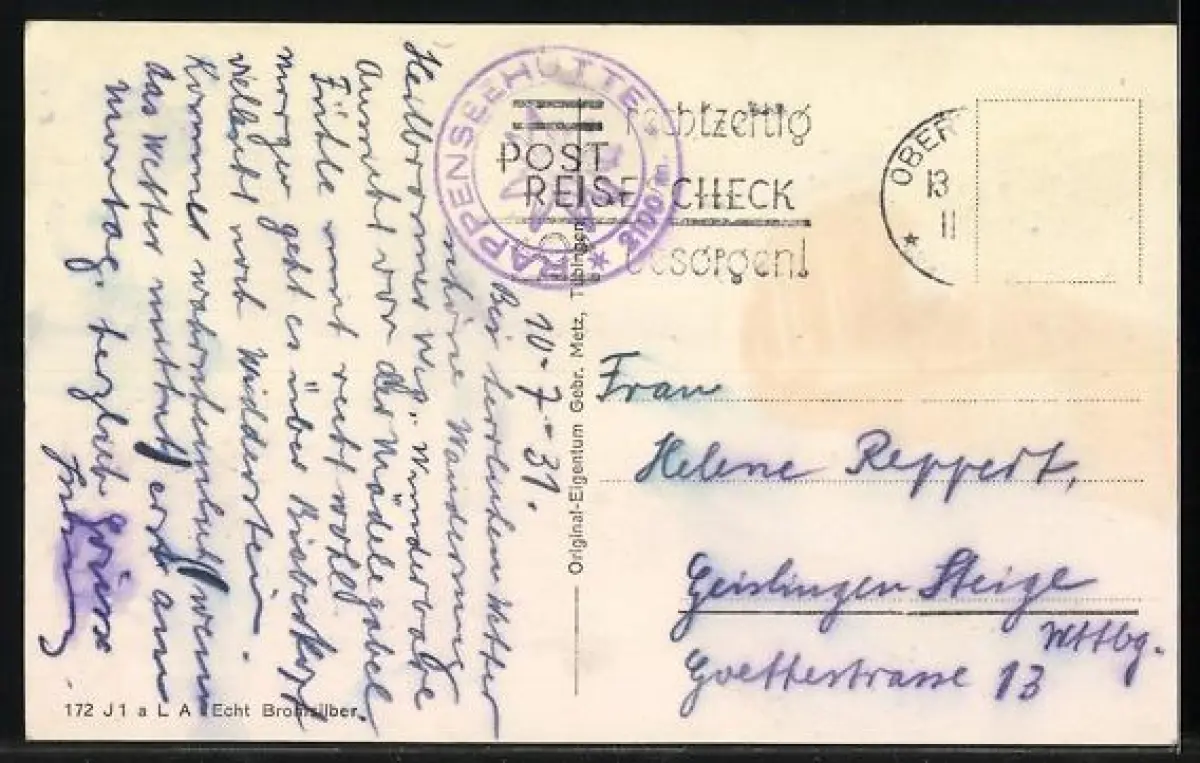 10-7-31.
Bei herrlichem Wetter
schöne Wanderung
Heilbronner Weg. Wunderbare
Aussicht von der Mädelegabel
Füße sind recht wohl.
morgen geht es über Biberkopf
vielleicht noch Widderstein.
Komme wahrscheinlich wenn
das Wetter mithält erst am
Montag. herzliche Grüsse
RAPPENSEEHÜTTE * 2100/m.
rechtzeitig
POST
REISE CHECK
besorgen!
OBER
13
11
*
Original-Eigentum Gebr. Metz, Tübingen
Frau
Helene Reppert,
Geislingen Steige
Wttbg.
Goethestrasse 13
172 J 1 a L A Echt Bromsilber.